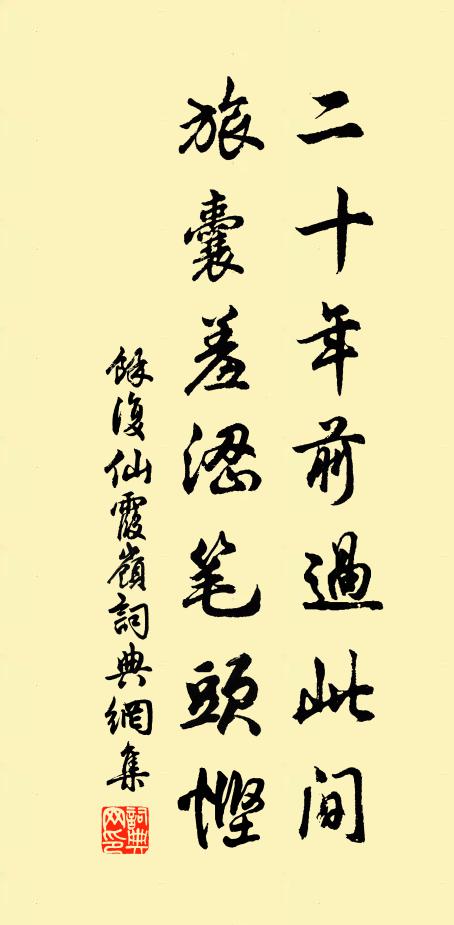 二十年前過此间
旅囊羞涩笔頭慳
餘復仙霞嶺詞典網集
詞典网印